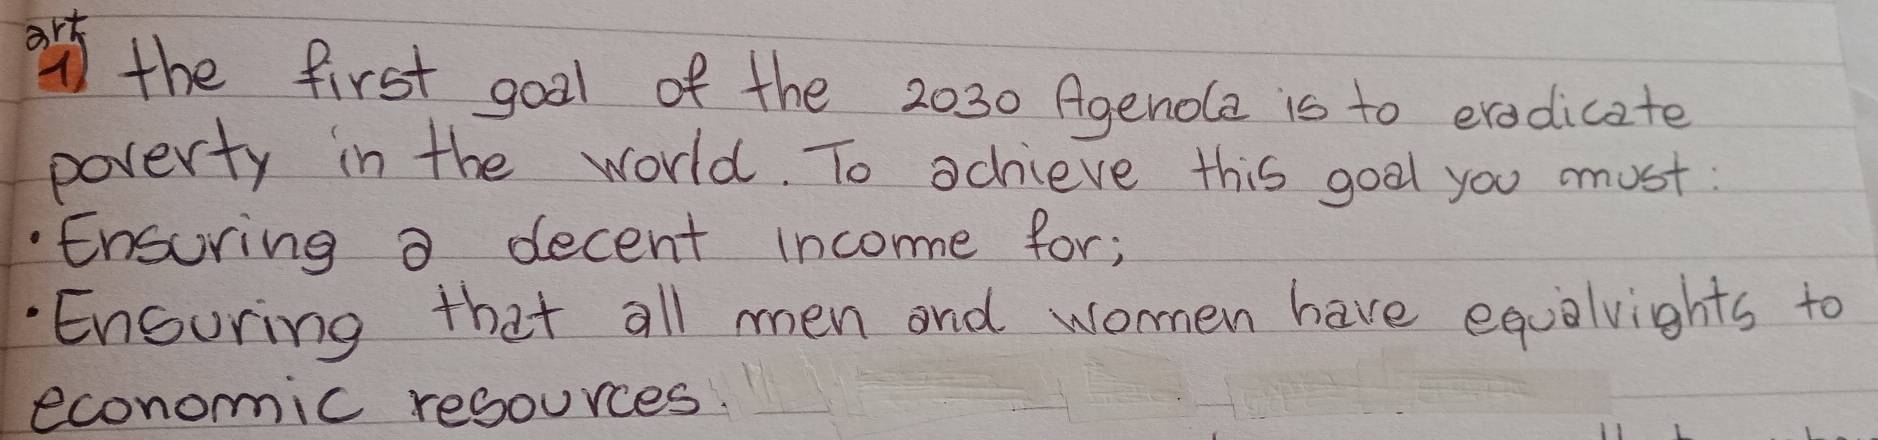 art
1) the first goal of the 2030 Agenda is to eradicate
poverty in the world. To achieve this goal you must:
• Ensuring a decent income for;
• Ensuring that all men and women have equalrights to
economic resources.